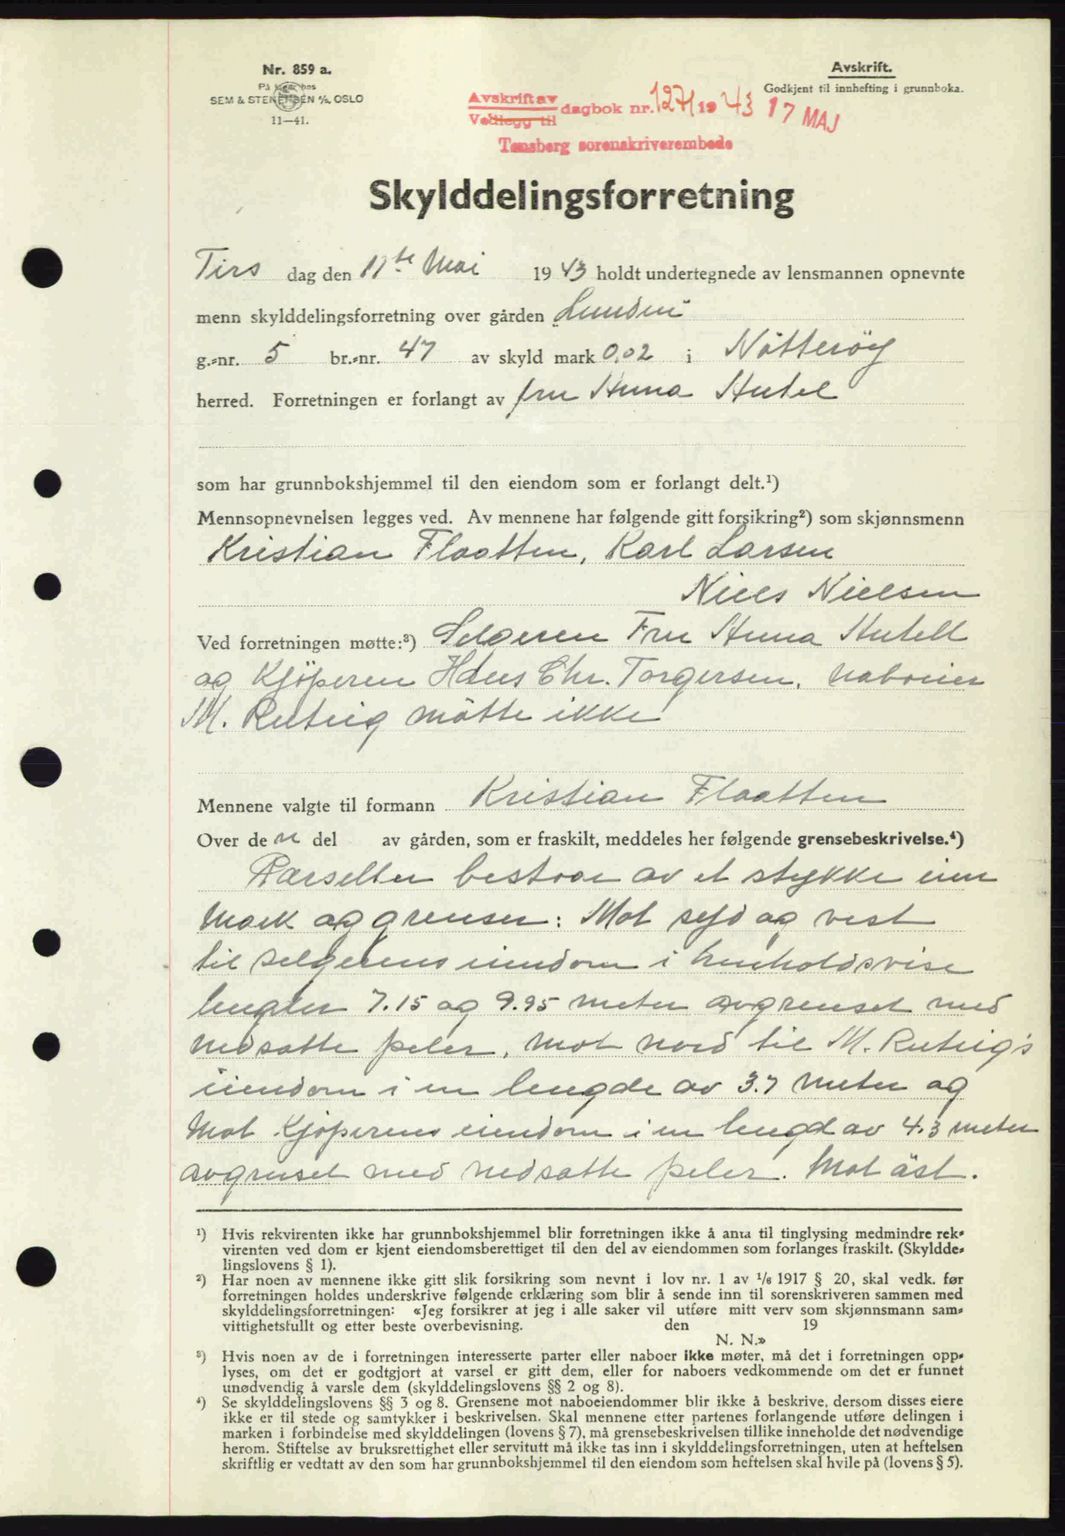 Nr. 859 a.
På lager hos
SEM & STENERSEN A/S, OSLO
11—41.
Avskrift.
Godkjent til innhefting i grunnboka.
Avskrift av
Vedlegg til
dagbok nr. 1271 1943 17 MAJ
Tønsberg sorenskriverembede
Skylddelingsforretning
Tirs dag den 11te Mai 1943 holdt undertegnede av lensmannen opnevnte
menn skylddelingsforretning over gården „Lunden“
g.-nr. 5 br.-nr. 47 av skyld mark 0,02 i Nötteröy
herred. Forretningen er forlangt av fru Anna
som har grunnbokshjemmel til den eiendom som er forlangt delt.¹)
Mennsopnevnelsen legges ved. Av mennene har følgende gitt forsikring²) som skjønnsmenn
Kristian Flaatten, Karl Larsen
Niels Nielsen
Ved forretningen møtte:³) Selgeren Fru Anna
og Kjöperen Hans Chr. Torgersen, naboeier
M. mötte ikke
Mennene valgte til formann Kristian Flaatten
Over de n del av gården, som er fraskilt, meddeles her følgende grensebeskrivelse.⁴)
Parsellen bestaar av et stykke inn
mark og grenser: Mot syd og vest
til selgerens eiendom i henholdsvise
lengder 7.15 og 9.95 meter avgrenset med
nedsatte peler, mot nord til M.
eiendom i en lengde av 3.7 meter og
mot Kjöperens eiendom i en lengd av 4.3 meter
avgrenset med nedsatte peler. Mot äst.
¹) Hvis rekvirenten ikke har grunnbokshjemmel blir forretningen ikke å anta til tinglysing medmindre rek-
virenten ved dom er kjent eiendomsberettiget til den del av eiendommen som forlanges fraskilt. (Skyldde-
lingslovens § 1).
²) Har noen av mennene ikke gitt slik forsikring som nevnt i lov nr. 1 av 1/6 1917 § 20, skal vedk. før
forretningen holdes underskrive følgende erklæring som blir å sende inn til sorenskriveren sammen med
skylddelingsforretningen: «Jeg forsikrer at jeg i alle saker vil utføre mitt verv som skjønnsmann sam-
vittighetsfullt og etter beste overbevisning. den 19
N. N.»
³) Hvis noen av de i forretningen interesserte parter eller naboer ikke møter, må det i forretningen opp-
lyses, om det er godtgjort at varsel er gitt dem, eller for naboers vedkommende om det er funnet
unødvendig å varsle dem (skylddelingslovens §§ 2 og 8).
⁴) Se skylddelingslovens §§ 3 og 8. Grensene mot naboeiendommer blir ikke å beskrive, dersom disses eiere
ikke er til stede og samtykker i beskrivelsen. Skal mennene etter partenes forlangende utføre delingen i
marken i forbindelse med skylddelingen (lovens § 7), må grensebeskrivelsen tillike inneholde det nødvendige
herom. Stiftelse av bruksrettighet eller servitutt må ikke tas inn i skylddelingsforretningen, uten at heftelsen
skriftlig er vedtatt av den som har grunnbokshjemmel til den eiendom som heftelsen skal hvile på (lovens § 5).